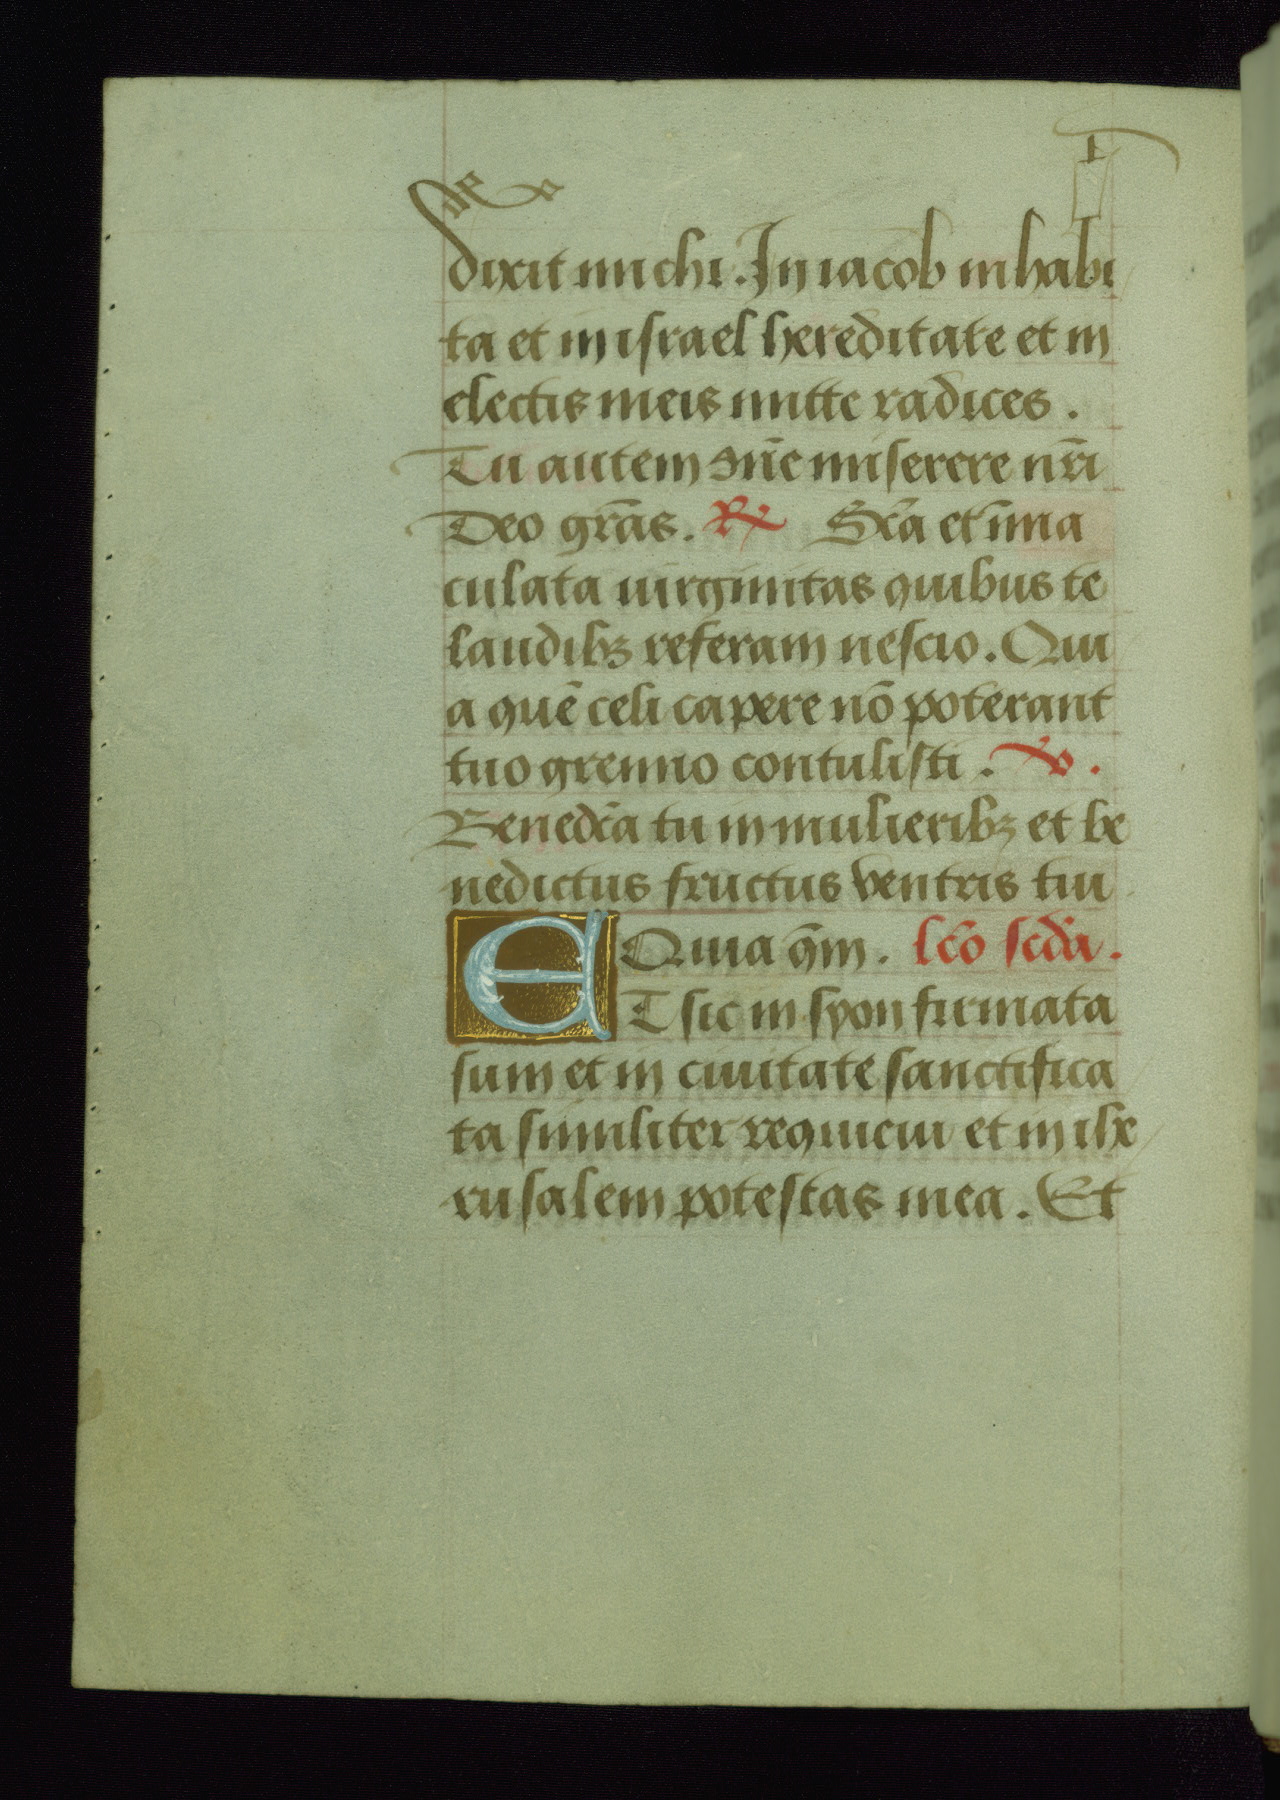 dixit michi. In iacob inhabi
ta et in israel hereditate et in
electis meis mitte radices.
Tu autem dñe miserere nr̃i
Deo gr̃as. ℟ Scã et im̃a
culata uirginitas quibus te
laudibꝫ referam nescio. Qui
a quẽ celi capere nõ poterant
tuo gremio contulisti. ℣.
Benedcã tu in mulieribꝫ et be
nedictus fructus ventris tui
Quia qm̃. lcõ scdã.
ET sic in syon firmata
sum et in ciuitate sanctifica
ta similiter requieui et in ihe
rusalem potestas mea. Et